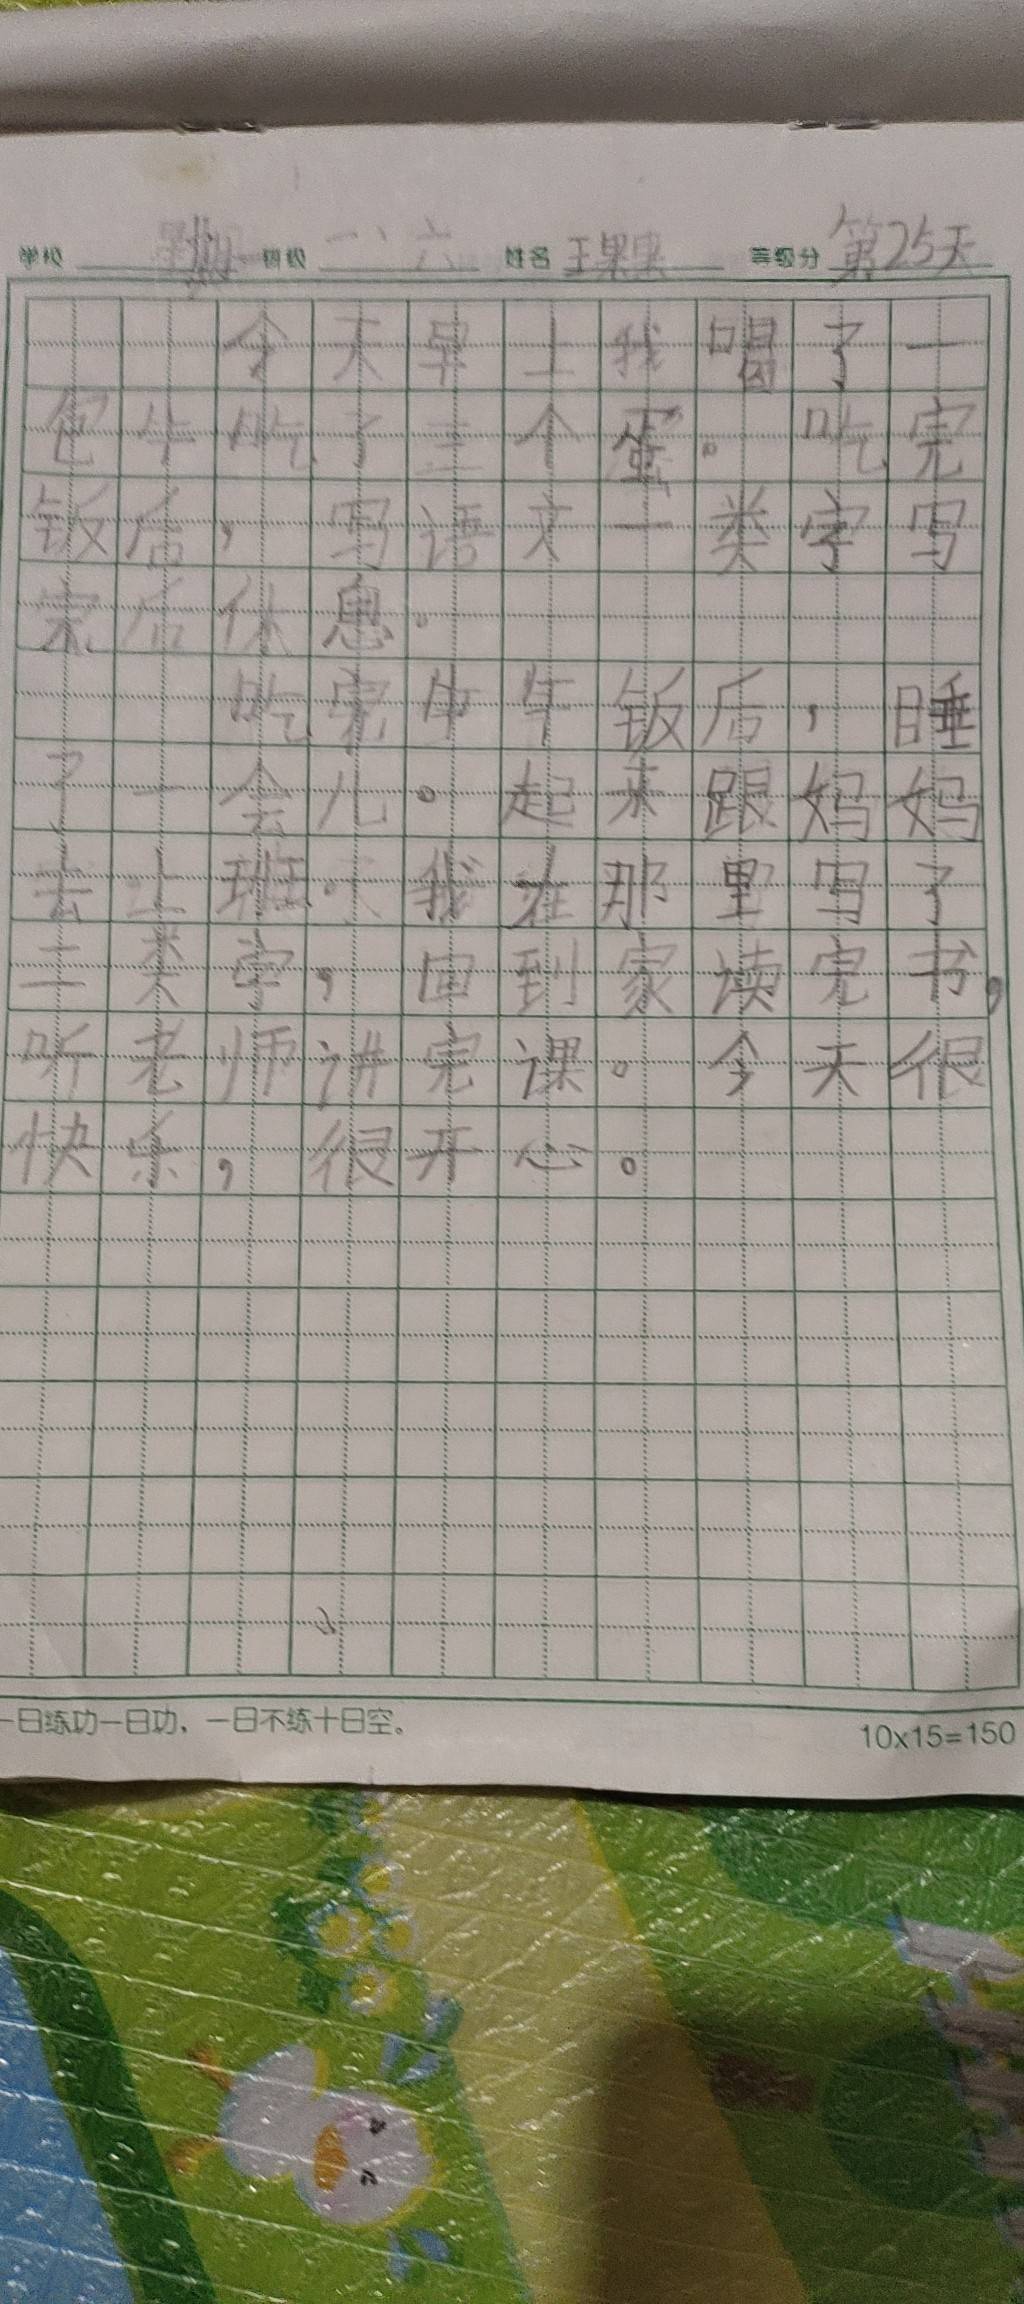 学校 班级 一、六 姓名 王果果 等级分 第25天
今天早上我喝了一
包牛吃了三个蛋。吃完
饭后,写语文一类字写
完后休息。
吃完中午饭后,睡
了一会儿。起来跟妈妈
去上班。我在那里写了
二类字,回到家读完书,
听老师讲完课。今天很
快乐,很开心。
一日练功一日功,一日不练十日空。
10x15=150